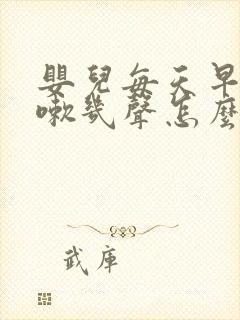 嬰兒每天早
嗽幾聲怎麼
武庫